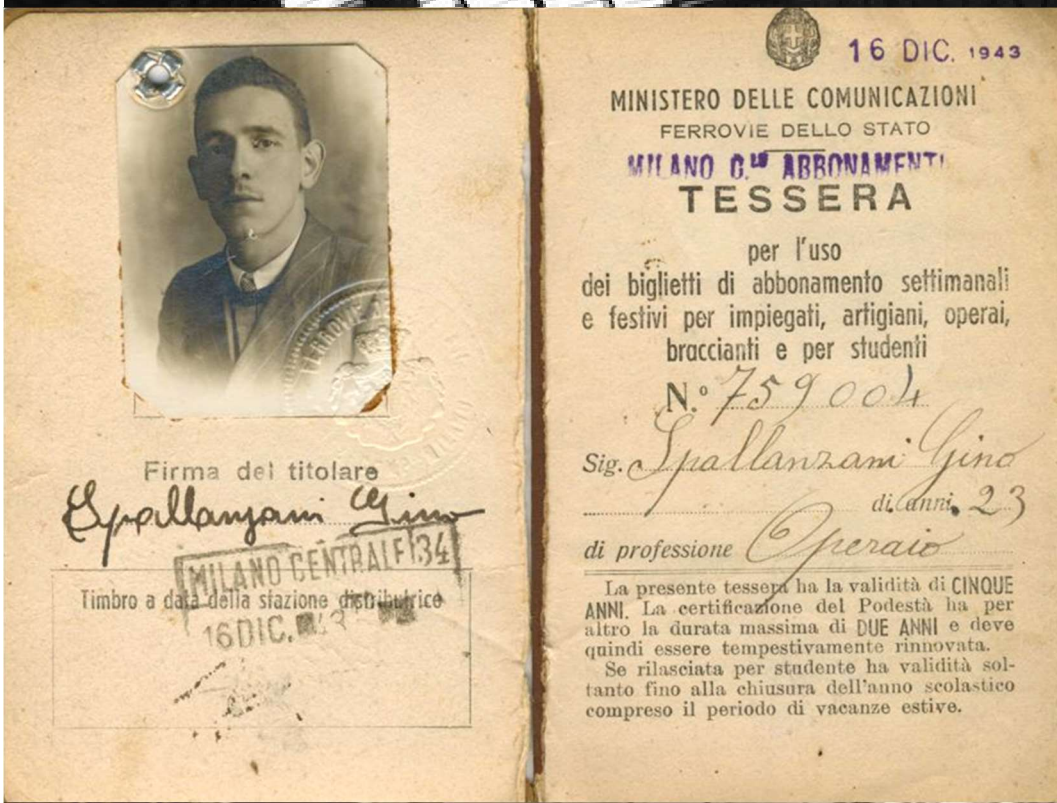 Firma del titolare
Spallanzani Gino
MILANO CENTRALE 34
Timbro a data della stazione distributrice
16 DIC. 43
16 DIC. 1943
MINISTERO DELLE COMUNICAZIONI
FERROVIE DELLO STATO
MILANO C.LE ABBONAMENTI
TESSERA
per l'uso
dei biglietti di abbonamento settimanali
e festivi per impiegati, artigiani, operai,
braccianti e per studenti
N.º 759004
Sig. Spallanzani Gino
di anni 23
di professione Operaio
La presente tessera ha la validità di CINQUE
ANNI. La certificazione del Podestà ha per
altro la durata massima di DUE ANNI e deve
quindi essere tempestivamente rinnovata.
Se rilasciata per studente ha validità sol-
tanto fino alla chiusura dell'anno scolastico
compreso il periodo di vacanze estive.